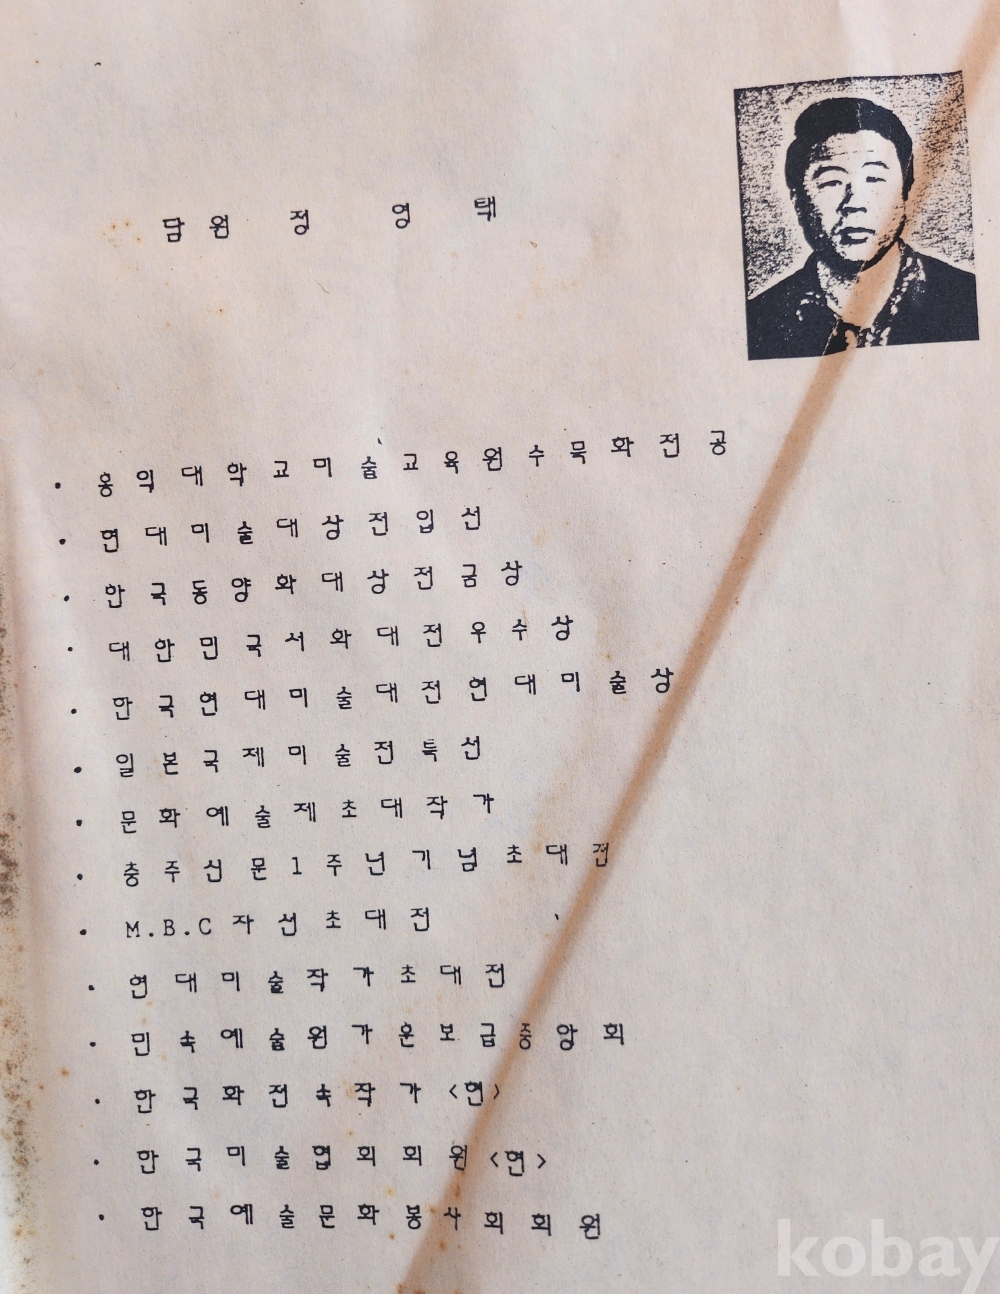 담원 정 영 택
· 홍익대학교미술교육원수묵화전공
· 현대미술대상전입선
· 한국동양화대상전금상
· 대한민국서화대전우수상
· 한국현대미술대전현대미술상
· 일본국제미술전특선
· 문화예술제초대작가
· 충주신문1주년기념초대전
· M.B.C자선초대전
· 현대미술작가초대전
· 민속예술원가훈보급중앙회
· 한국화전속작가<현>
· 한국미술협회회원<현>
· 한국예술문화봉사회회원
kobay